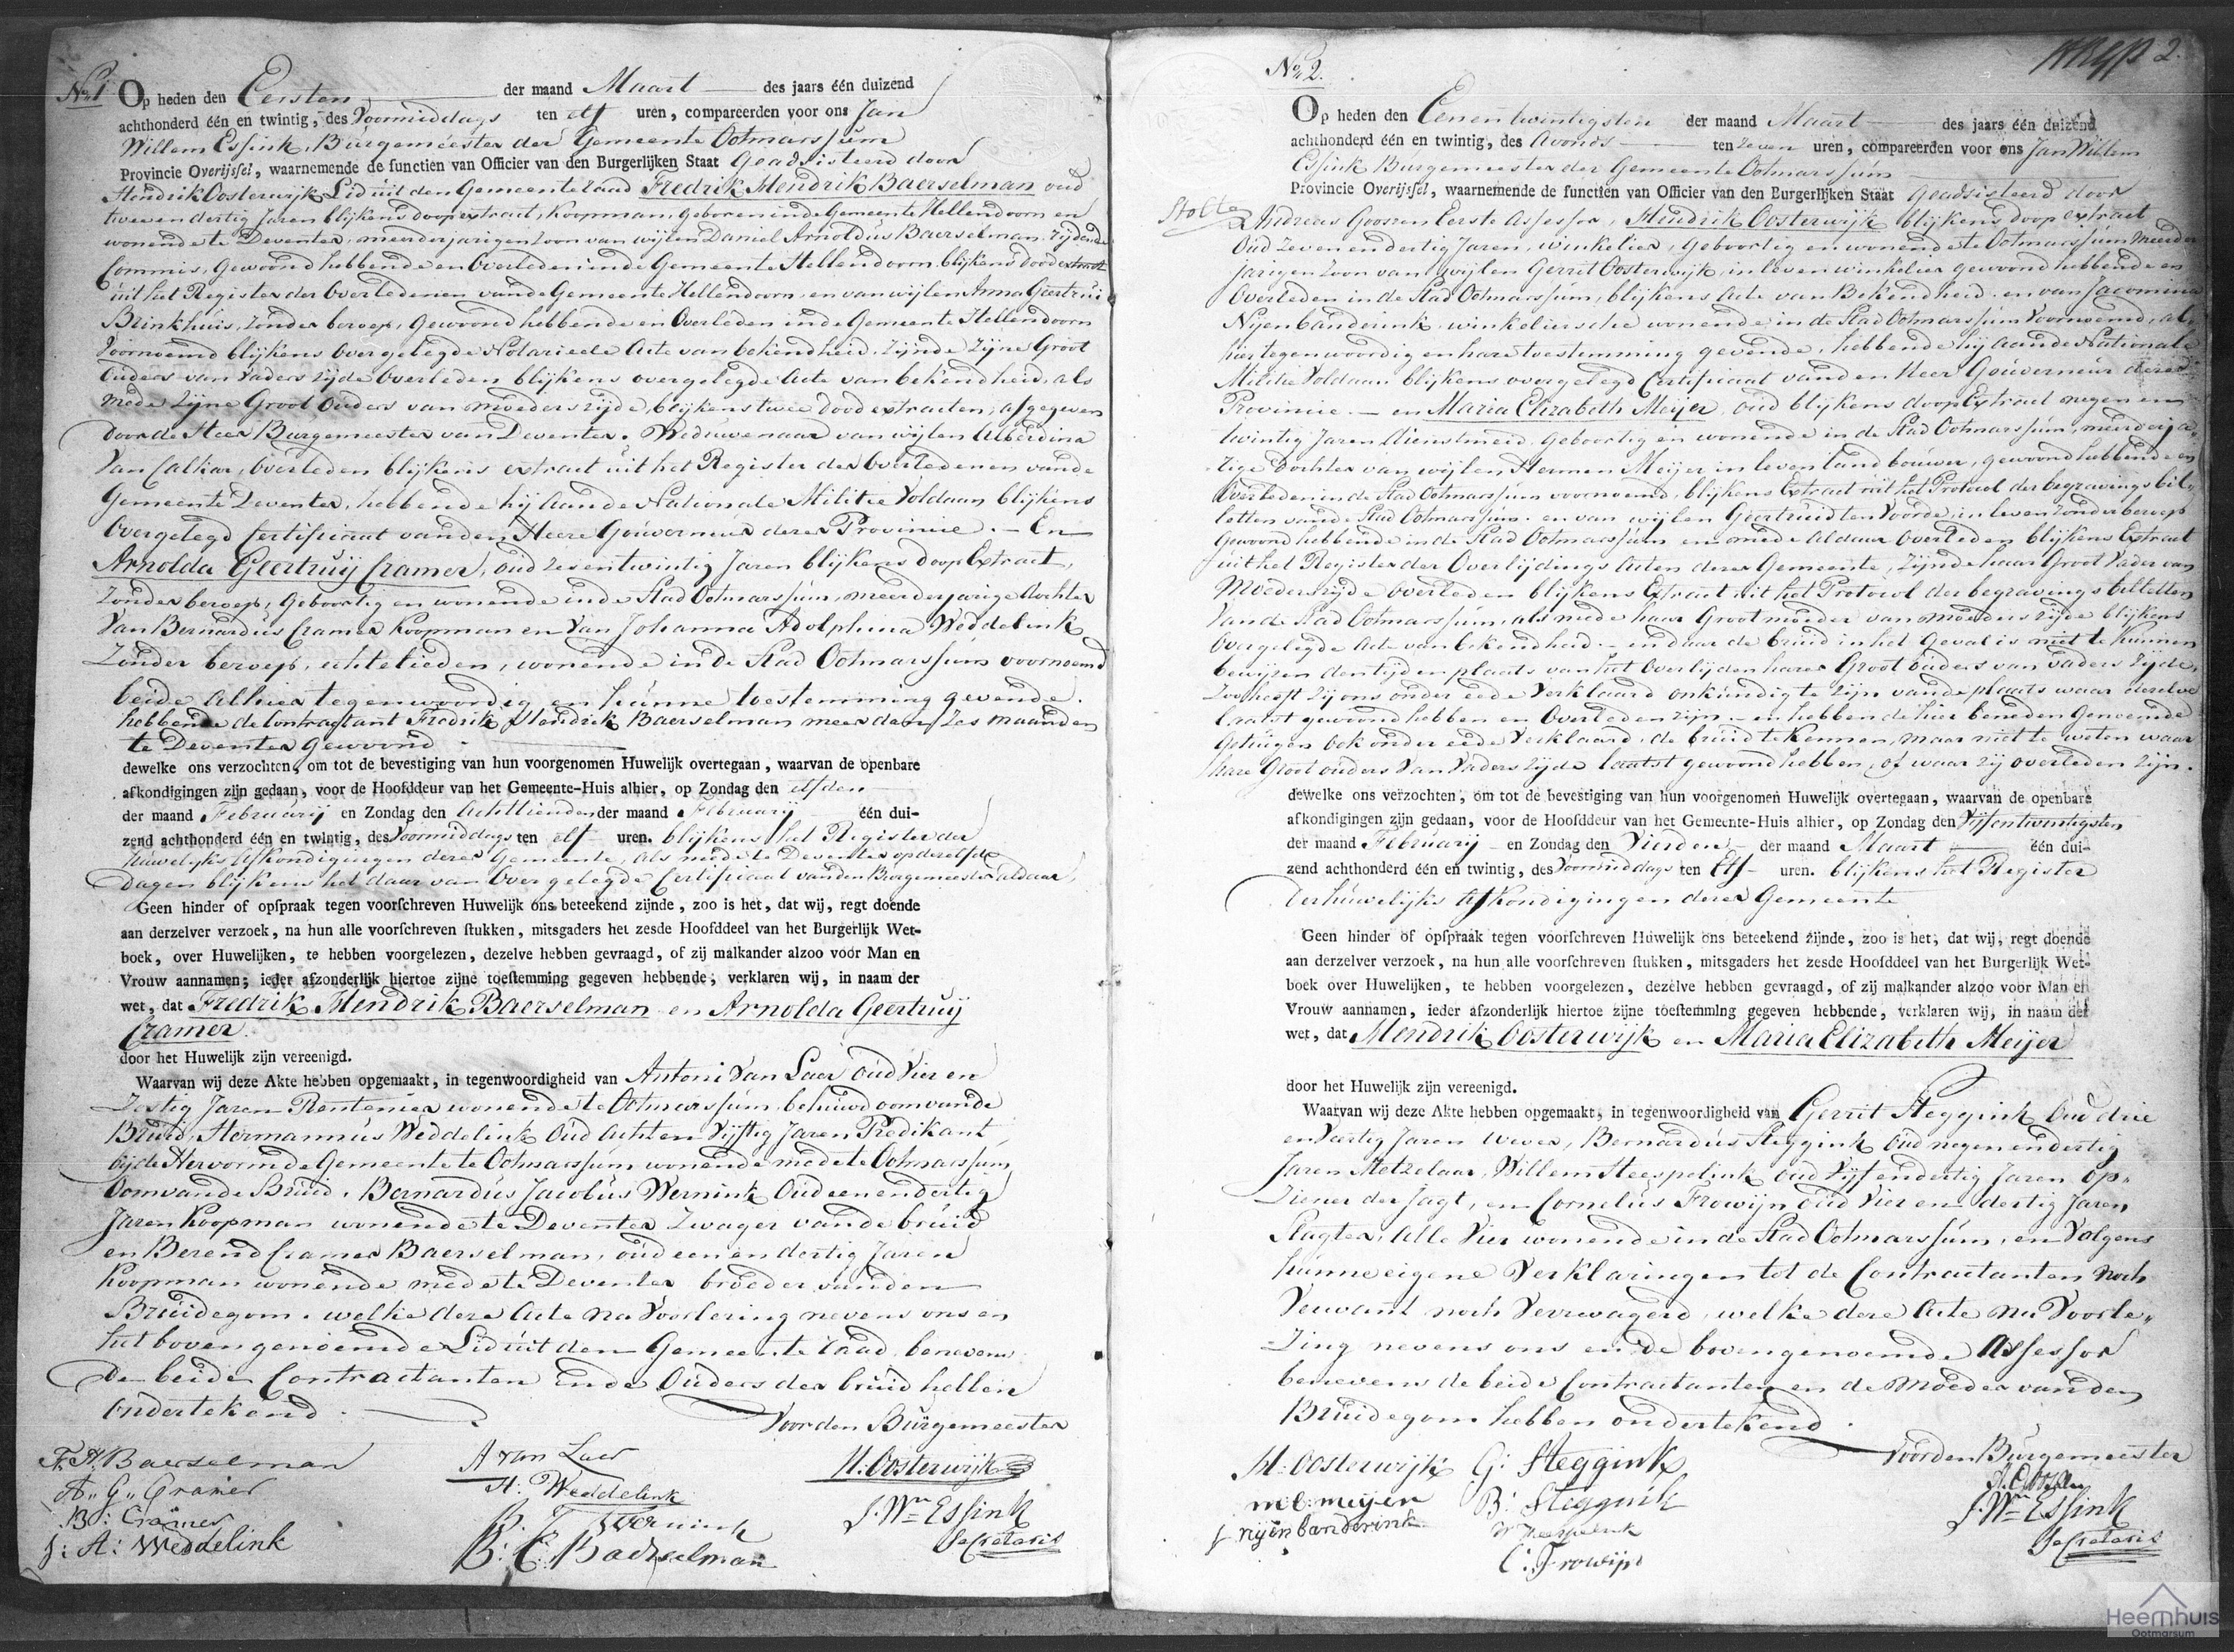 No. 1
Op heden den Eersten der maand Maart des jaars één duizend
achthonderd één en twintig, des Voormiddags ten elf uren, compareerden voor ons Jan
Willem Essink, Burgemeester der Gemeente Ootmarssum
Provincie Overijssel, waarnemende de functien van Officier van den Burgerlijken Staat Geadsisteerd door
Hendrik Oosterwijk Lid uit den Gemeente raad Fredrik Hendrik Baerselman oud
twee en dertig Jaren blijkens doop extract, Koopman, geboren in de Gemeente Hellendoorn en
wonende te Deventer, meerderjarigen Zoon van wijlen Daniel Arnoldus Baerselman, Zijnde
Commis, Gewoond hebbende en Overleden in de Gemeente Hellendoorn blijkens dood extract
uit het Register der Overledenen van de Gemeente Hellendoorn, en van wijlen Anna Geertrui
Brinkhuis, Zonder beroep, Gewoond hebbende en Overleden in de Gemeente Hellendoorn
Voornoemd blijkens overgelegde Notarieele Acte van bekendheid, Zijnde Zijne Groot
Ouders van Vaders zijde Overleden blijkens overgelegde Acte van bekendheid, als
mede Zijne Groot Ouders van Moeders zijde, blijkens twee dood extracten, afgegeven
door de Heer Burgemeester van Deventer. Weduwenaar van wijlen Alberdina
Van Calkar, Overleden blijkens extract uit het Register der Overledenen van de
Gemeente Deventer, hebbende hij aan de Nationale Militie Voldaan blijkens
Overgelegd Certificaat van den Heere Gouverneur dezer Provincie. — En
Arnolda Geertruij Cramer, oud zes en twintig Jaren blijkens doop Extract,
Zonder beroep, Geboortig en wonende in de Stad Ootmarssum, meerderjarige dochter
Van Bernardus Cramer Koopman en Van Johanna Adolphina Weddelink
Zonder beroep, echtelieden, wonende in de Stad Ootmarssum voornoemd
beide Alhier tegenwoordig en hunne toestemming gevende.
hebbende de Contractant Fredrik Hendrik Baerselman meer dan Zes maanden
te Deventer gewoond
dewelke ons verzochten, om tot de bevestiging van hun voorgenomen Huwelijk overtegaan, waarvan de openbare
afkondigingen zijn gedaan, voor de Hoofddeur van het Gemeente-Huis alhier, op Zondag den elfden
der maand Februarij en Zondag den Achttienden der maand Februarij één dui-
zend achthonderd één en twintig, des Voormiddags ten elf uren. blijkens het Register der
Huwelijks Afkondigingen dezer Gemeente, als mede te Deventer op dezelfde
dagen blijkens het daar van Overgelegde Certificaat van den Burgemeester aldaar,
Geen hinder of opspraak tegen voorschreven Huwelijk ons beteekend zijnde, zoo is het, dat wij, regt doende
aan derzelver verzoek, na hun alle voorschreven stukken, mitsgaders het zesde Hoofddeel van het Burgerlijk Wet-
boek, over Huwelijken, te hebben voorgelezen, dezelve hebben gevraagd, of zij malkander alzoo voor Man en
Vrouw aannamen; ieder afzonderlijk hiertoe zijne toestemming gegeven hebbende; verklaren wij, in naam der
wet, dat Fredrik Hendrik Baerselman en Arnolda Geertruij
Cramer.
door het Huwelijk zijn vereenigd.
Waarvan wij deze Akte hebben opgemaakt, in tegenwoordigheid van Antoni Van Laer oud Vier en
Zestig Jaren Rentenier wonende te Ootmarssum, behuwd oom van de
Bruid, Hermannus Weddelink Oud Acht en Vijftig Jaren Predikant
bij de Hervormde Gemeente te Ootmarssum wonende mede te Ootmarssum
Oom van de Bruid. Bernardus Jacobus Wernink Oud een en dertig
Jaren Koopman wonende te Deventer Zwager van de bruid
en Berend Cramer Baerselman, oud een en dertig Jaren
Koopman wonende mede te Deventer broeder van den
Bruidegom. welke deze Acte na Voorlezing nevens ons en
het bovengenoemde Lid uit den Gemeente raad, benevens
de beide Contractanten en de Ouders der bruid hebben
Ondertekend.
Voor den Burgemeester
F. H. Baerselman
A. G. Cramer
B: Cramer
J: A: Weddelink
A van Laer
H: Weddelink
B. J. Wernink
B: C: Baerselman
H. Oosterwijk
J. Wm Essink
Secretaris
2.
No. 2.
Op heden den Eenen twintigsten der maand Maart des jaars één duizend
achthonderd één en twintig, des Avonds ten zeven uren, compareerden voor ons Jan Willem
Essink Burgemeester der Gemeente Ootmarssum
Provincie Overijssel, waarnemende de functien van Officier van den Burgerlijken Staat Geadsisteerd door
Stolte
Andreas Goossen Eerste Assessor, Hendrik Oosterwijk blijkens doop extract
Oud Zeven en dertig Jaren, winkelier, Geboortig en wonende te Ootmarssum Meerder
jarigen Zoon van wijlen Gerrit Oosterwijk, in leven winkelier gewoond hebbende en
Overleden in de Stad Ootmarssum, blijkens Acte van Bekendheid en van Jacomina
Nijenbanderink winkeliersche wonende in de Stad Ootmarssum Voornoemd, al
hier tegenwoordig en hare toestemming gevende, hebbende hij aan de Nationale
Militie Voldaan blijkens overgelegd Certificaat van den Heer Gouverneur dezer
Provincie. — en Maria Elizabeth Meijer, oud blijkens doop Extract negen en
twintig Jaren Dienstmeid, Geboortig en wonende in de Stad Ootmarssum, meerderja-
rige dochter van wijlen Hermen Meijer in leven landbouwer, gewoond hebbende en
Overleden in de Stad Ootmarssum voornoemd, blijkens Extract uit het Protocol der begravings bil-
letten van de Stad Ootmarssum. en van wijlen Geertruid ten Voorde, in leven zonder beroep
Gewoond hebbende in de Stad Ootmarssum en mede aldaar Overleden blijkens Extract
uit het Register der Overlijdings Acten dezer Gemeente, Zijnde haar Groot Vader van
Moeders zijde overleden blijkens Extract uit het Protocol der begravings billetten
Van de Stad Ootmarssum, als mede haar Grootmoeder van moeders zijde blijkens
Overgelegde Acte van bekendheid. — en daar de bruid in het Geval is niet te kunnen
bewijzen den tijd en plaats van het Overlijden harer Groot ouders van Vaders zijde,
Zoo heeft zij ons onder eede Verklaard onkundig te zijn van de plaats waar dezelve
Laatst gewoond hebben en Overleden zijn. — en hebben de hier beneden Genoemde
Getuigen ook onder eede Verklaard, de bruid te Kennen, maar niet te weten waar
hare Groot ouders Van Vaders zijde laatst gewoond hebben, of waar zij overleden zijn.
dewelke ons verzochten, om tot de bevestiging van hun voorgenomen Huwelijk overtegaan, waarvan de openbare
afkondigingen zijn gedaan, voor de Hoofddeur van het Gemeente-Huis alhier, op Zondag den Vijfentwintigsten
der maand Februarij en Zondag den Vierden der maand Maart één dui-
zend achthonderd één en twintig, des Voormiddags ten Elf uren. blijkens het Register
der huwelijks Afkondigingen dezer Gemeente
Geen hinder of opspraak tegen voorschreven Huwelijk ons beteekend zijnde, zoo is het, dat wij, regt doende
aan derzelver verzoek, na hun alle voorschreven stukken, mitsgaders het zesde Hoofddeel van het Burgerlijk Wet-
boek over Huwelijken, te hebben voorgelezen, dezelve hebben gevraagd, of zij malkander alzoo voor Man en
Vrouw aannamen, ieder afzonderlijk hiertoe zijne toestemming gegeven hebbende, verklaren wij, in naam der
wet, dat Hendrik Oosterwijk en Maria Elizabeth Meijer
door het Huwelijk zijn vereenigd.
Waarvan wij deze Akte hebben opgemaakt, in tegenwoordigheid van Gerrit Steggink Oud drie
en Veertig Jaren Wever, Bernardus Steggink Oud negen en dertig
Jaren Metzelaar, Willem Heespelink Oud Vijf en dertig Jaren Op-
Ziener der Jagt, en Cornelius Frowijn Oud Vier en dertig Jaren
Slagter, Alle Vier wonende in de Stad Ootmarssum, en Volgens
hunne eigene Verklaringen tot de Contractanten noch
Verwant noch Verzwagerd, welke deze Acte na Voorle-
zing nevens ons en de bovengenoemde Assessor
benevens de beide Contractanten en de Moeder van den
Bruidegom hebben ondertekend.
Voor den Burgemeester
H: Oosterwijk
m E: meijer
J nijenbanderink
G: Steggink
B: Steggink
W Heespelink
C: Frowijn
J. Wm Essink
Secretaris
Heemhuis
Ootmarsum